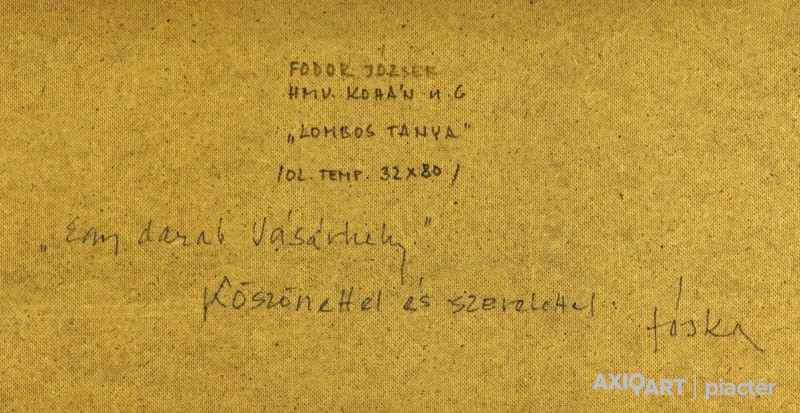 FODOR JÓZSEF
HMV. KOHÁN U. 6
„LOMBOS TANYA"
/OL. TEMP. 32x80/
„Egy darab Vásárhely."
Köszönettel és szeretettel.
Jóska
AXIOART | piactér